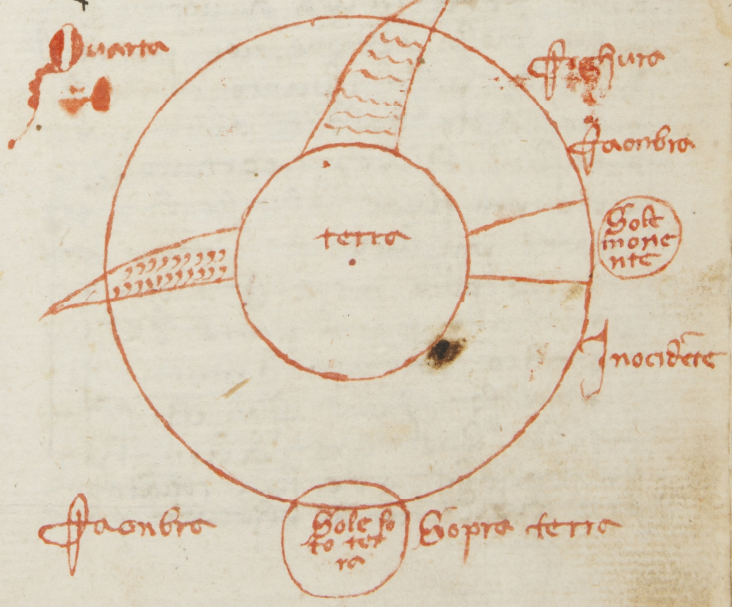 Quarta
Fighura
Fa onbra
terra
Sole
mone
nte
Inocidēte
Fa onbra
Sole so
to ter
ra
Sopra terra